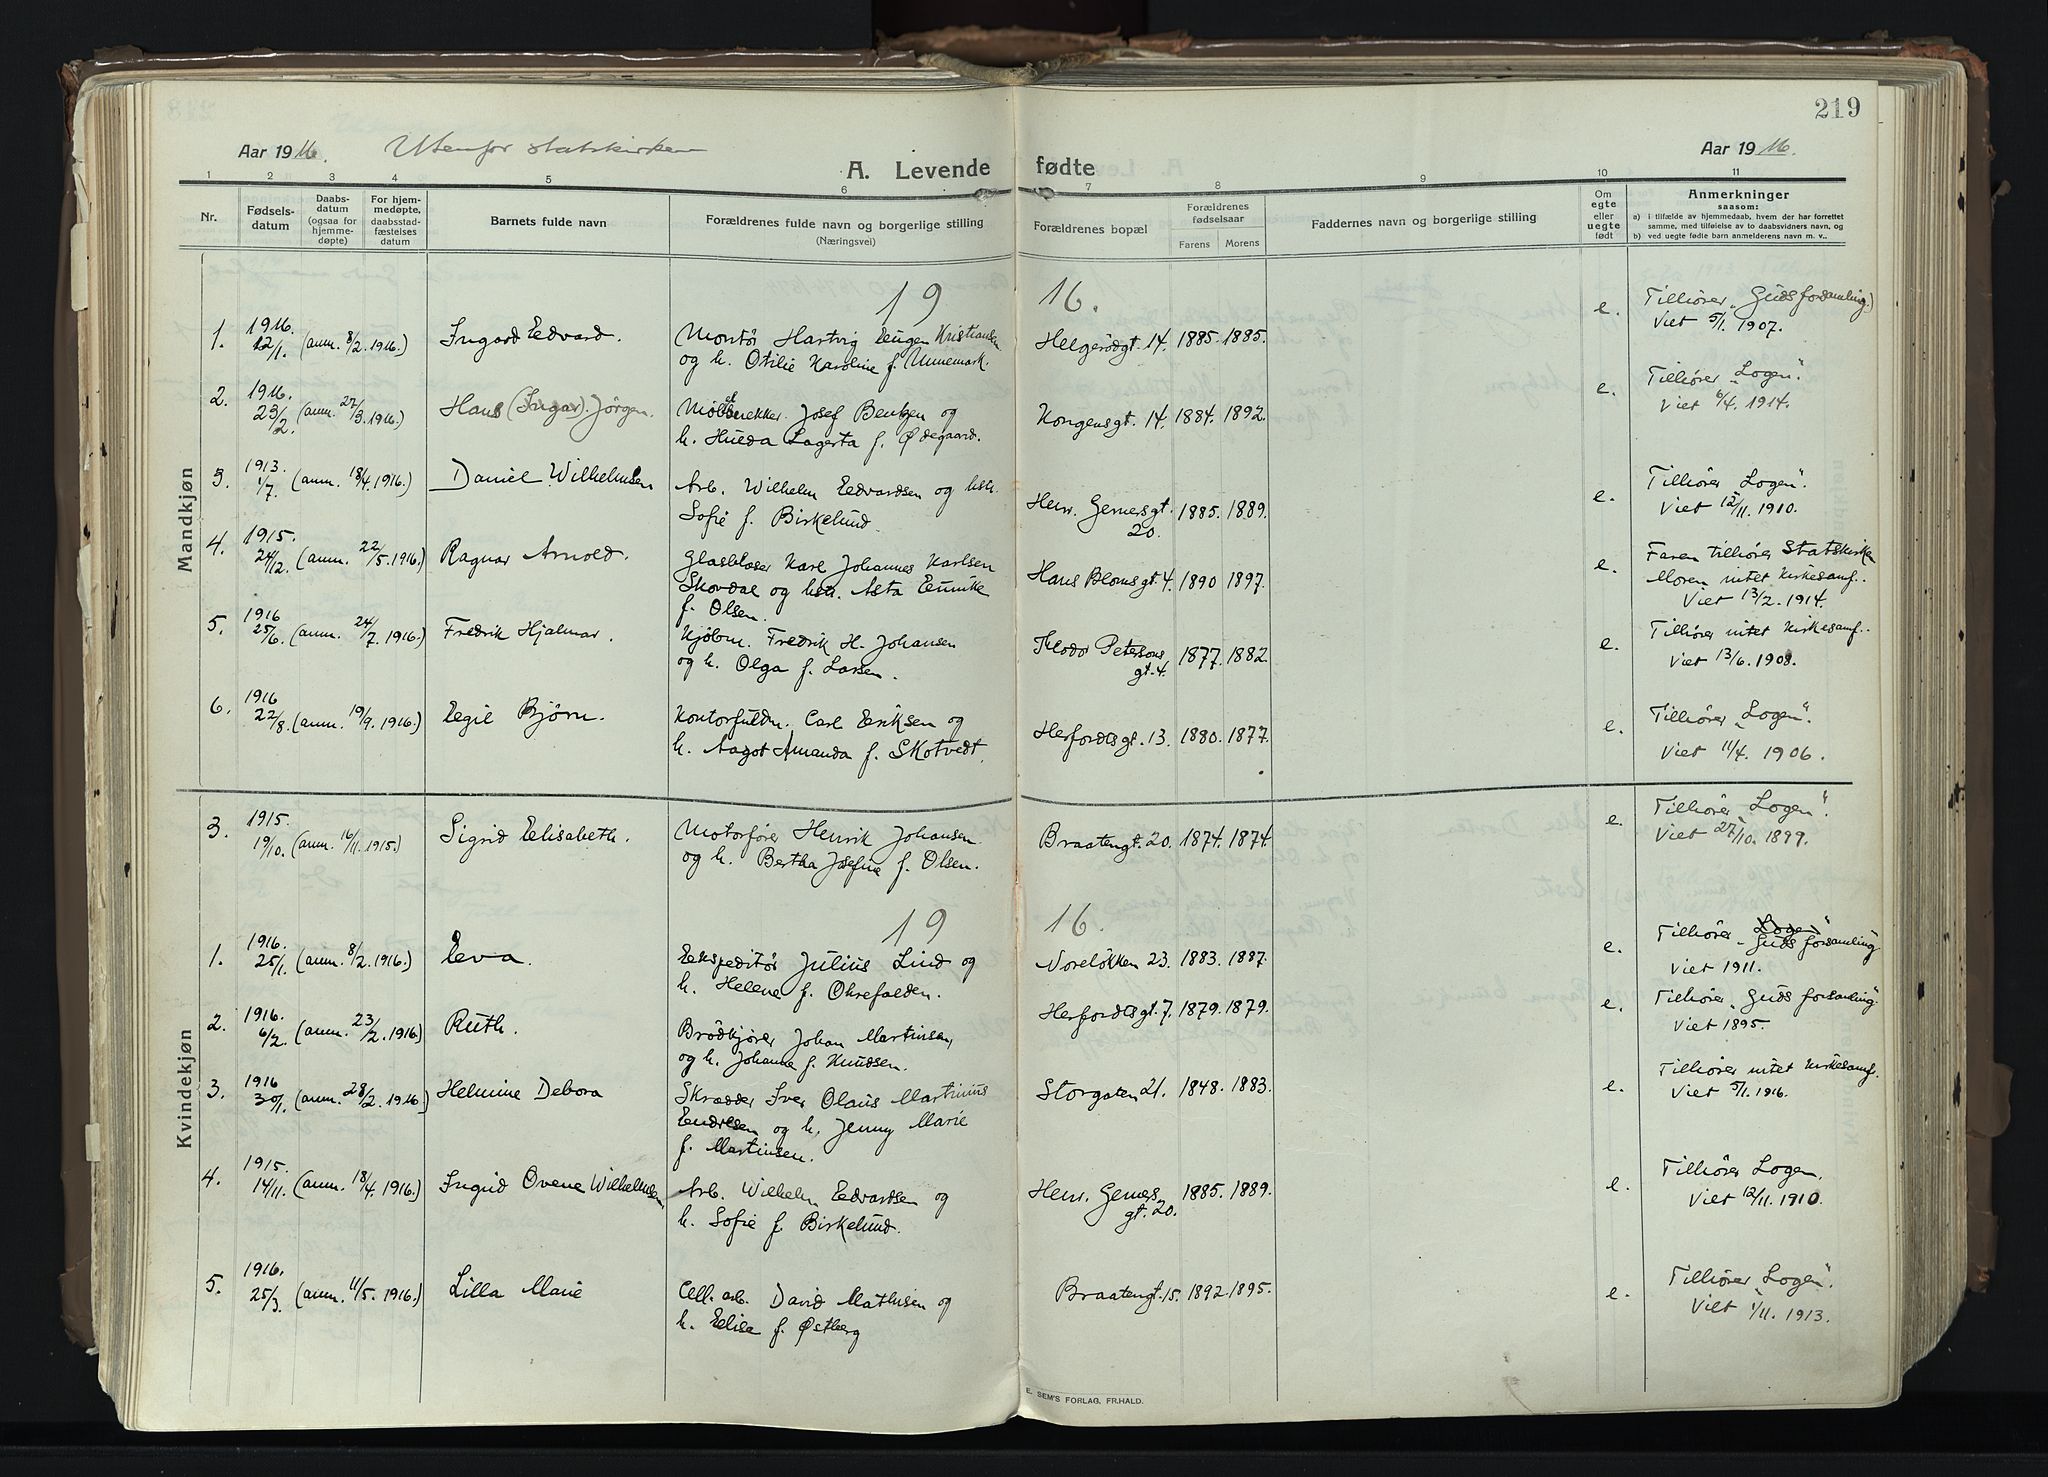 219
Aar 1916. Utenfor statskirken
Aar 1916.
A. Levende fødte
1 2 3 4 5 6 7 8 9 10 11
Nr.
Fødsels-
datum
Daabs-
datum
(ogsaa for
hjemme-
døpte)
For hjem-
medøpte,
daabsstad-
fæstelses
datum
Barnets fulde navn
Forældrenes fulde navn og borgerlige stilling
(Næringsvei)
Forældrenes bopæl
Forældrenes
fødselsaar
Farens Morens
Faddernes navn og borgerlige stilling
Om
egte
eller
uegte
født
Anmerkninger
saasom:
a) i tilfælde av hjemmedaab, hvem der har forrettet
samme, med tilføielse av to daabsvidners navn, og
b) ved uegte fødte barn anmelderens navn m. v..
Mandkjøn
19 16.
1. 1916. 12/1. (anm. 8/2. 1916.) Ingard Edvard. Montör Hartvig Eugen Kristiansen
og h. Otilie Karoline f. Unnemark. Helgerödgt. 14. 1885. 1885. e. Tilhörer „Guds forsamling.)
Viet 5/1. 1907.
2. 1916. 23/2. (anm. 27/3. 1916.) Hans (Ingar). Jörgen. Möbelsnekker. Josef Bentzen og
h. Hulda Lagerta f. Ødegaard. Kongensgt. 14. 1884. 1892. e. Tilhörer „Logen".
Viet 6/4. 1914.
3. 1913. 1/7. (anm. 18/4. 1916.) Daniel Wilhelmsen Arb. Wilhelm Edvardsen og hstr.
Sofie f. Birkelund. Henr. Gernersgt. 20. 1885. 1889. e. Tilhörer Logen".
Viet 12/11. 1910.
4. 1915. 24/12. (anm. 22/5. 1916.) Ragnar Arnold. Glasblaser Karl Johannes Karlsen
Skovdal og hstr. Asta Eunike
f. Olsen. Hans Blomsgt. 4. 1890 1897. e. Faren tilhörer Statskirken
Moren intet Kirkesamf..
Viet 13/2. 1914.
5. 1916 25/6. (anm. 24/7. 1916.) Fredrik Hjalmar. Kjöbm. Fredrik H. Johansen
og h. Olga f. Larsen. Theodor Petersons gt. 4. 1877. 1882. e. Tilhörer intet Kirkesamf..
Viet 13/6. 1908.
6. 1916 22/8. (anm. 19/9. 1916.) Egil Björn. Kontorfuldm. Carl Eriksen og
h. Aagot Amanda f. Skotvedt. Herfordtsgt. 13. 1880. 1877. e. Tilhörer „Logen".
Viet 11/4. 1906.
Kvindekjøn
3. 1915. 19/10. (anm. 16/11. 1915.) Sigrid Elisabeth. Motorförer Henrik Johansen.
og h. Bertha Josefine f. Olsen. Braatengt. 20. 1874. 1874. e. Tilhörer „Logen".
Viet 27/10. 1899.
19 16.
1. 1916. 25/1. (anm. 8/2. 1916.) Eva. Ekspeditör Julius Lind og
h. Helene f. Okrefalden. Noreløkken 23. 1883. 1887. e. Tilhörer „Logen" Guds forsamling"
Viet 1911.
2. 1916. 6/2. (anm. 23/2. 1916.) Ruth. Brödkjörer Johan Martinsen,
og h. Johanne f. Knudsen. Herfordtsgt. 7. 1879. 1879. e. Tilhörer „Guds forsamling".
Viet 1895.
3. 1916 30/1. (anm. 28/2. 1916.) Helmine Debora Skrædder Iver Olaus Martinius
Endresen og h. Jenny Marie
f. Martinsen. Storgaten 21. 1848. 1883. e. Tilhörer intet Kirkesamf.
Viet 5/1. 1916.
4. 1915. 14/11. (anm. 18/4. 1916.) Ingrid Ovene Wilhelmsen Arb. Wilhelm Edvardsen og
h. Sofie f. Birkelund. Henr. Gerners gt. 20. 1885. 1889. e. Tilhörer Logen.
Viet 12/11. 1910.
5. 1916. 25/3. (anm. 11/5. 1916.) Lilla Marie Cell. arb. David Mathisen og
h. Elise f. Østberg Braatengt. 15. 1892. 1895. e. Tilhörer „Logen".
Viet 1/11. 1913.
E. SEM'S FORLAG, FR.HALD.